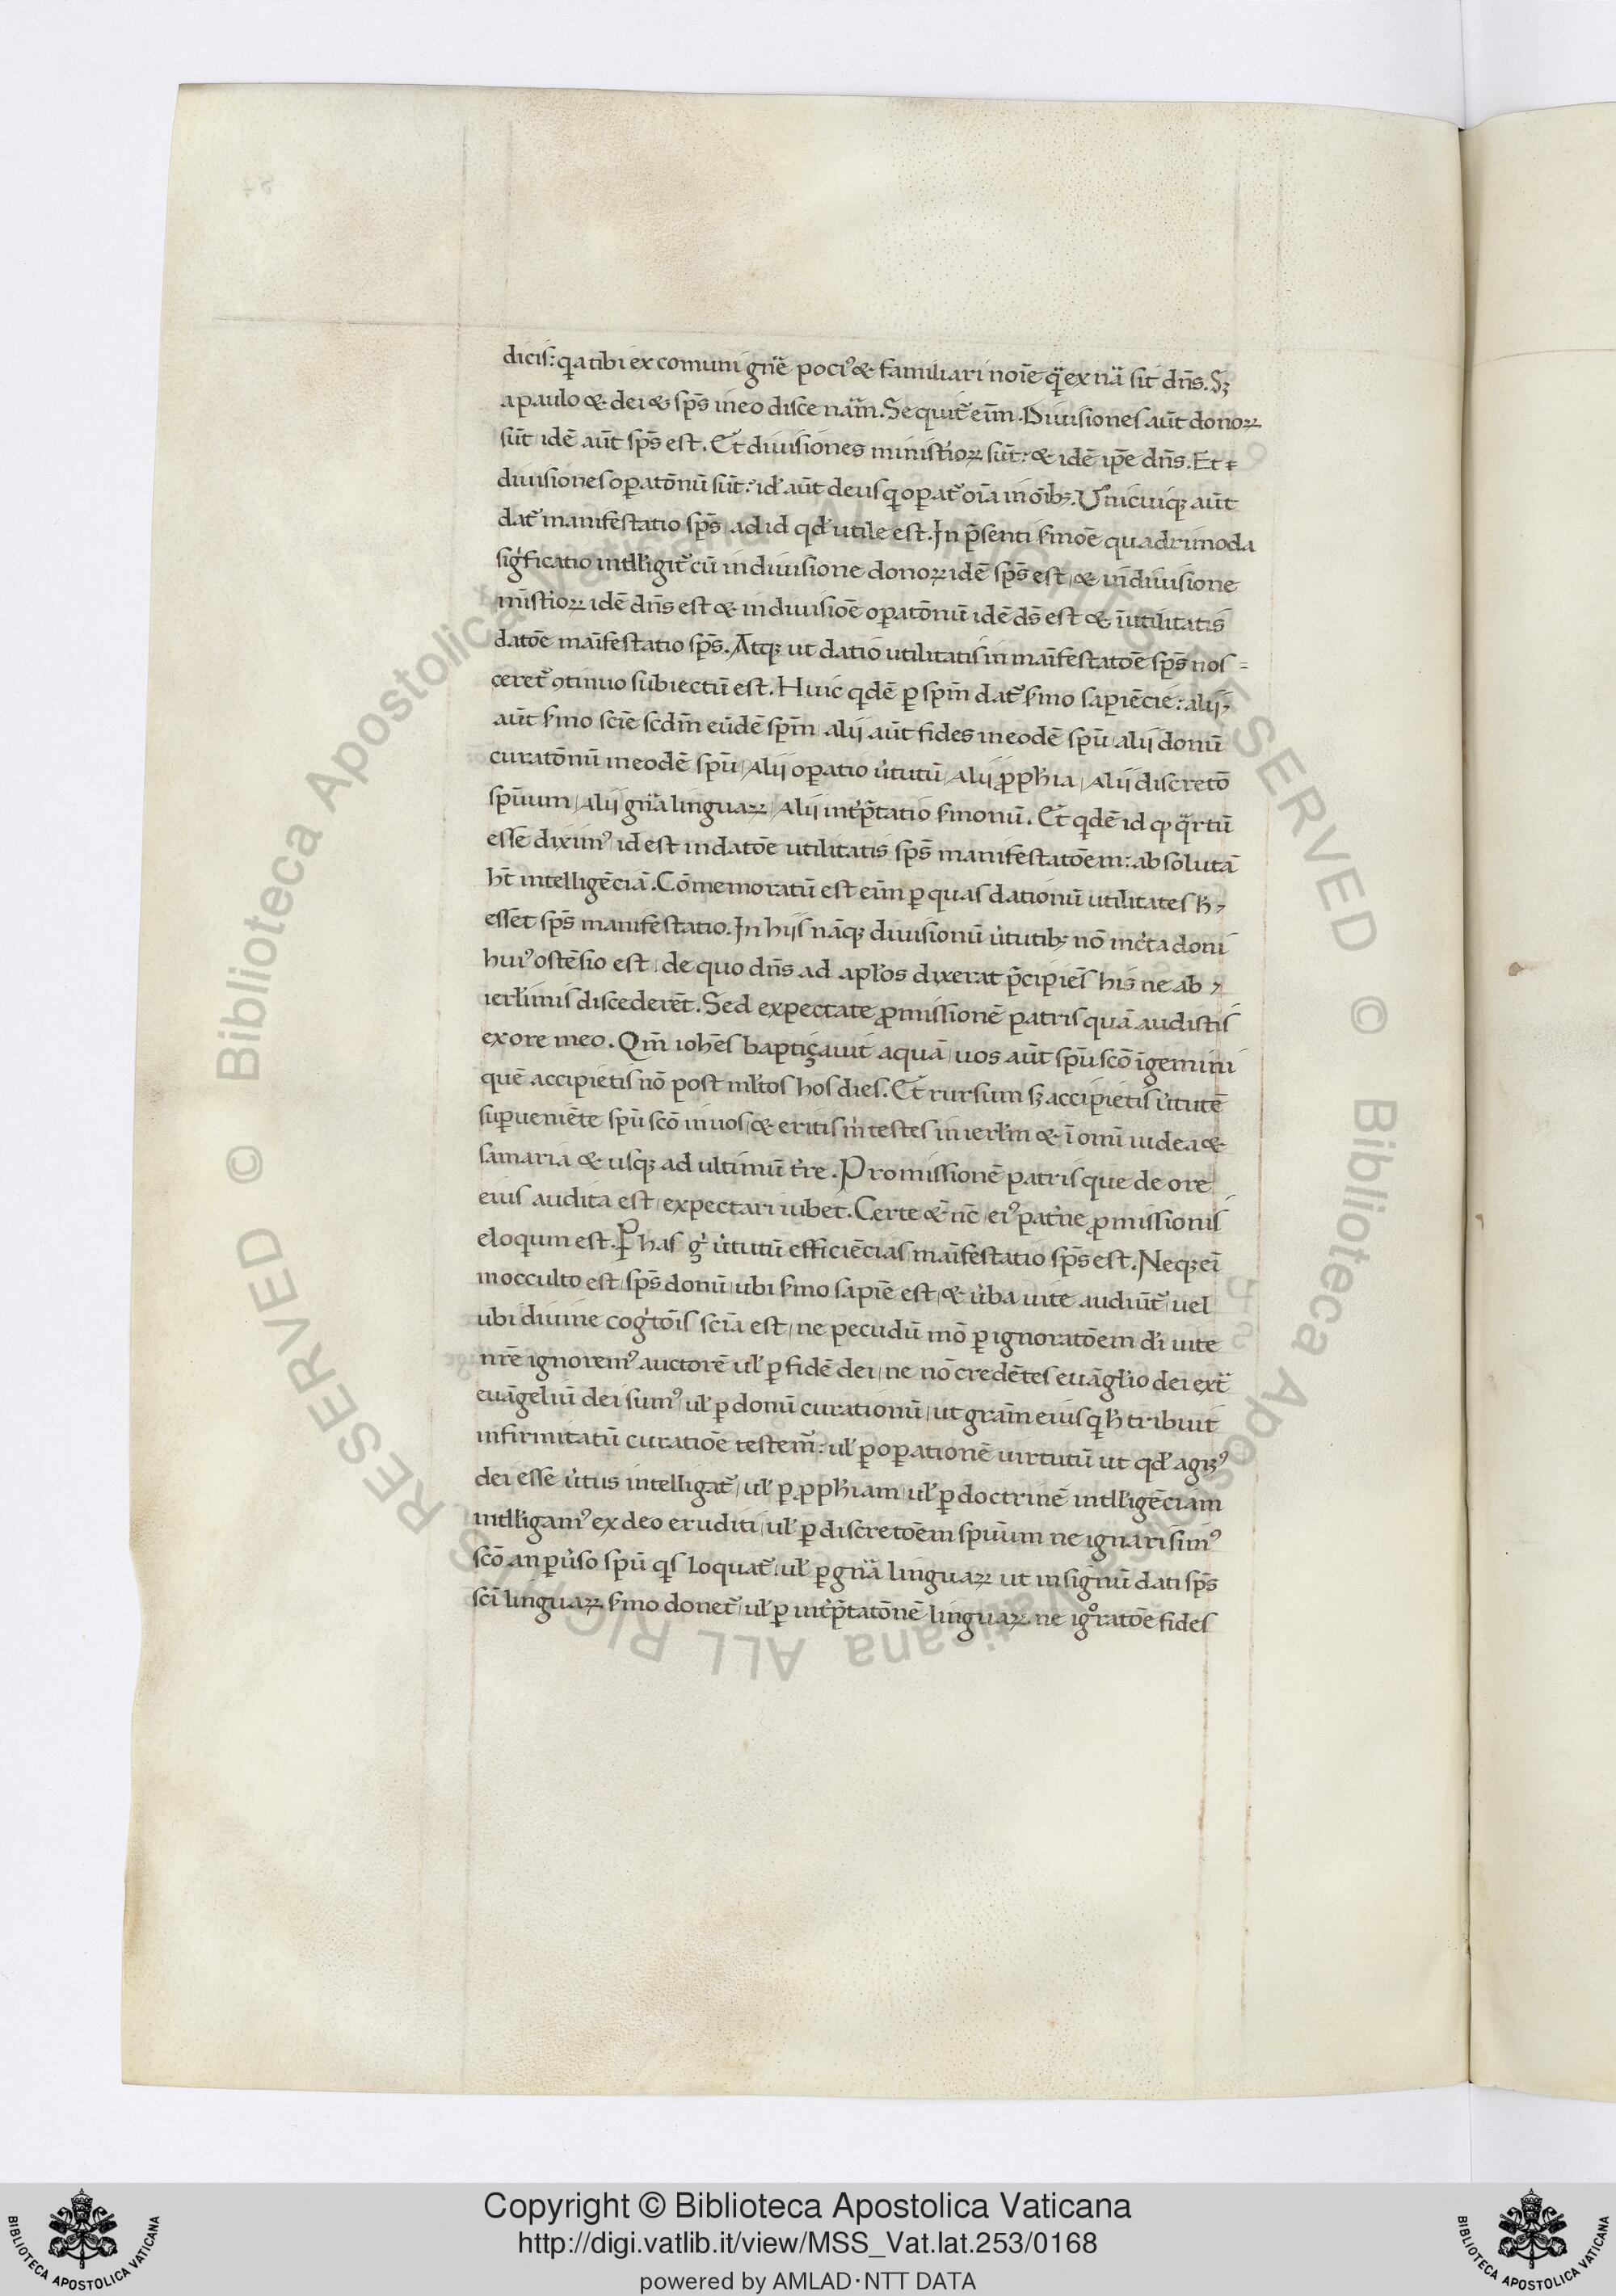 dicis: qa tibi ex comuni gn̄e poci9 & familiari noīe q̄ ex nā sit dn̄s. Sꝫ
a paulo & dei & sp̄s in eo disce nām. Sequit᷑ eīm. Diuisiones aūt donoꝝ
sūt idē aūt sp̄s est. Et diuisiones ministioꝝ sūt: & idē ip̄e dn̄s. Et
diuisiones oꝑatōnū sūt: id᷑ aūt deus q oꝑat᷑ oīa in oībꝫ. Unicuiqꝫ aūt
dat᷑ manifestatio sp̄s ad id qd᷑ utile est. In p̄senti s̾moē quadrimoda
sigficatio intll̓igit᷑ cū in diuisione donoꝝ idē sp̄s est, & in diuisione
mīstioꝝ idē dn̄s est & in diuisiōe oꝑatōnū idē ds̄ est & ī utilitatis
datōe maīfestatio sp̄s. Atqꝫ ut datio utilitatis in maīfestatōe sp̄s nos=
ceret᷑ ꝯtinuo subiectū est. Huic qdē ꝑ sp̄m dat᷑ s̾mo sapiēcie: alij
aūt s̾mo scīe scdm̄ eūdē sp̄m alij aūt fides in eodē spū alij donū
curatōnū in eodē spū, alij oꝑatio u̾tutū, alij ꝓph̄ia, alij discretō
sp̄uum, alij gn̄a linguaꝝ, alij int̾p̄tatio s̾monū. Et qdē id ꝙ qrtū
esse dixim9 id est in datōe utilitatis sp̄s manifestatōem: absolutā
ht̄ intelligēciā. Cōmemoratū est eīm ꝑ quas dationū utilitates h̄
essēt sp̄s manifestatio. In hijs nāqꝫ diuisionū u̾tutibꝫ nō inc̾ta doni
hui9 ostēsio est, de quo dn̄s ad apl̓os dixerat p̄cipiēs his ne ab
ierl̓imis discederēt. Sed expectate ꝓmissionē patris quā audistis
ex ore meo. Qm̄ ioh̄es baptiçauit aquā, uos aūt spū scō īgemini
quē accipietis nō post ml̓tos hos dies. Et rursum sꝫ accipietis u̾tutē
suꝑueniēte spū scō in uos, & eritis m̓ testes in ierl̓m & ī omī iudea &
samaria & usqꝫ ad ultimū t̾re. Promissionē patris que de ore
eius audita est, expectari iubet. Certe & nc̄ ei9 pat̾ne ꝓmissionis
eloqum est. Ꝑ has g̾ u̾tutū efficiēcias maīfestatio sp̄s est. Neqꝫ eī
in occulto est, sp̄s donū, ubi s̾mo sapiē est, & u̾ba uite audiūt᷑, uel
ubi diuine cogtōis scīa est, ne pecudū mō ꝑ ignoratōem d̓i uite
nr̄e ignorem9 auctorē ul̓ ꝑ fidē dei, ne nō credētes euāgl̓io dei ext᷑
euāgeliū dei sum9, ul̓ ꝑ donū curationū, ut grām eius q h̄ tribuit
infirmitatū curatiōe testem᷑: ul̓ ꝑ oꝑationē uirtutū ut qd᷑ agim9
dei esse u̾tus intelligat᷑, ul̓ ꝑ ꝓph̄iam, ul̓ ꝑ doctrinē intll̓igēciam
intll̓igam9 ex deo eruditi, ul̓ ꝑ discretōem sp̄uum ne ignari sim9
scō an ꝑu̾so spū qs loquat᷑, ul̓ ꝑ gn̄a linguaꝝ ut in signū dati sp̄s
scī linguaꝝ s̾mo donet᷑, ul̓ ꝑ int̾p̄tatōnē linguaꝝ ne igratōe fides
Copyright © Biblioteca Apostolica Vaticana
http://digi.vatlib.it/view/MSS_Vat.lat.253/0168
powered by AMLAD·NTT DATA